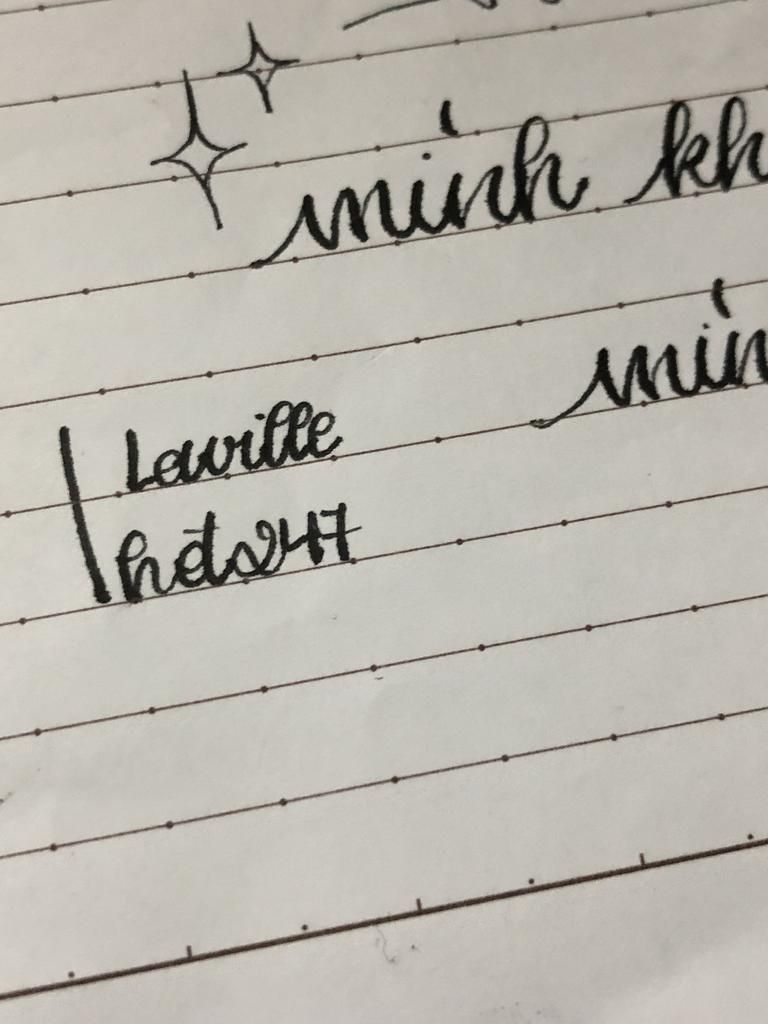 minh kh
min
Laville
hds247